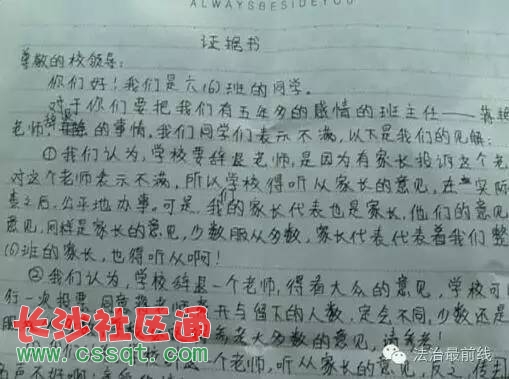 ALWAYSBESIDEYOU
证据书
尊敬的校领导:
你们好!我们是六(6)班的同学。
对于你们要把我们有五年多的感情的班主任——蒋
老师辞退的事情,我们同学们表示不满,以下是我们的见解:
①我们认为,学校要辞退老师,是因为有家长投诉这个老
对这个老师表示不满,所以学校得听从家长的意见,在实际
查之后,公平地办事,可是,我们的家长代表也是家长,他们的意见
意见,同样是家长的意见,少数服从多数,家长代表代表着我们整
(6)班的家长,也得听从啊!
②我们认为,学校辞退一个老师,得看大众的意见,学校可
行一次投票,同意蒋老师离开与留下的人数,定会不同,少数还是
服 老大多数的意见,请参考!
一个老师,听从家长的意见,反之,传
名声不好啊
长沙社区通
www.cssqt.com
法治最前线